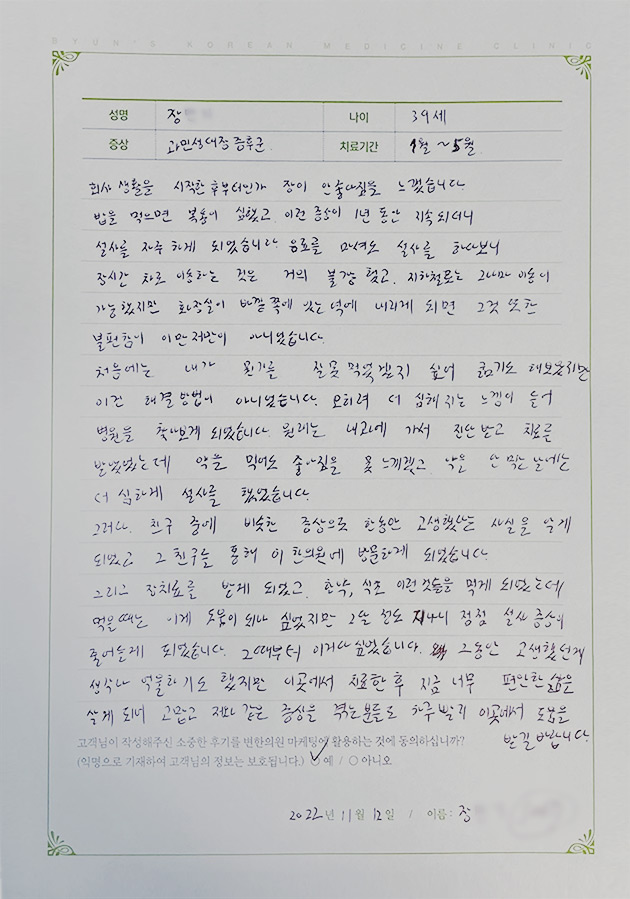 BYUN'S KOREAN MEDICINE CLINIC
성명 장 나이 39세
증상 과민성대장증후군 치료기간 1월 ~ 5월
회사 생활을 시작한 후부터인가 장이 안좋아짐을 느꼈습니다
밥을 먹으면 복통이 심했고 이런 증상이 1년 동안 지속되더니
설사를 자주 하게 되었습니다. 음료를 마셔도 설사를 하다보니
장시간 차로 이동하는 것은 거의 불가능 했고, 지하철로는 그나마 이동이
가능했지만 화장실이 바깥쪽에 있는 역에 내리게 되면 그것 또한
불편함이 이만저만이 아니었습니다.
처음에는 내가 뭔가를 잘못 먹었겠지 싶어 굶기도 해보았지만
이건 해결방법이 아니었습니다. 오히려 더 심해지는 느낌이 들어
병원을 찾아보게 되었습니다. 원래는 내과에 가서 진단받고 치료를
받았었는데 약을 먹어도 좋아짐을 못 느끼겠고, 약을 안 먹는 날에는
더 심하게 설사를 했었습니다.
그러다, 친구 중에 비슷한 증상으로 한동안 고생했다는 사실을 알게
되었고 그 친구를 통해 이 한의원에 방문하게 되었습니다.
그리고 장치료를 받게 되었고, 한약, 식초 이런것들을 먹게 되었는데
먹을때는 이게 도움이 되나 싶었지만 2달 정도 지나니 점점 설사 증상이
줄어들게 되었습니다. 그때부터 이거다 싶었습니다. 그동안 고생했던게
생각나 억울하기도 했지만 이곳에서 치료한 후 지금 너무 편안한 삶을
살게 되어 고맙고 저와 같은 증상을 겪는분들도 하루빨리 이곳에서 도움을
받길 바랍니다.
고객님이 작성해주신 소중한 후기를 변한의원 마케팅에 활용하는 것에 동의하십니까?
(익명으로 기재하여 고객님의 정보는 보호됩니다.) ○ 예 / ○ 아니오
2022년 11월 12일 / 이름: 장